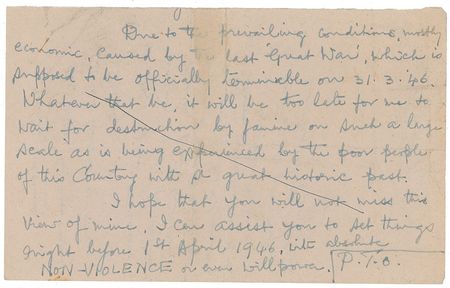 Due to the prevailing conditions, mostly
economic, caused by the last 'Great War', which is
supposed to be officially terminable on 31.3.'46.
Whatever that be, it will be too late for me to
wait for destruction by famine on such a large
scale as is being experienced by the poor people
of this Country with a great historic past.
I hope that you will not miss this
view of mine. I can assist you to set things
right before 1st April 1946, with absolute
NON-VIOLENCE or even willpower. P.T.O.